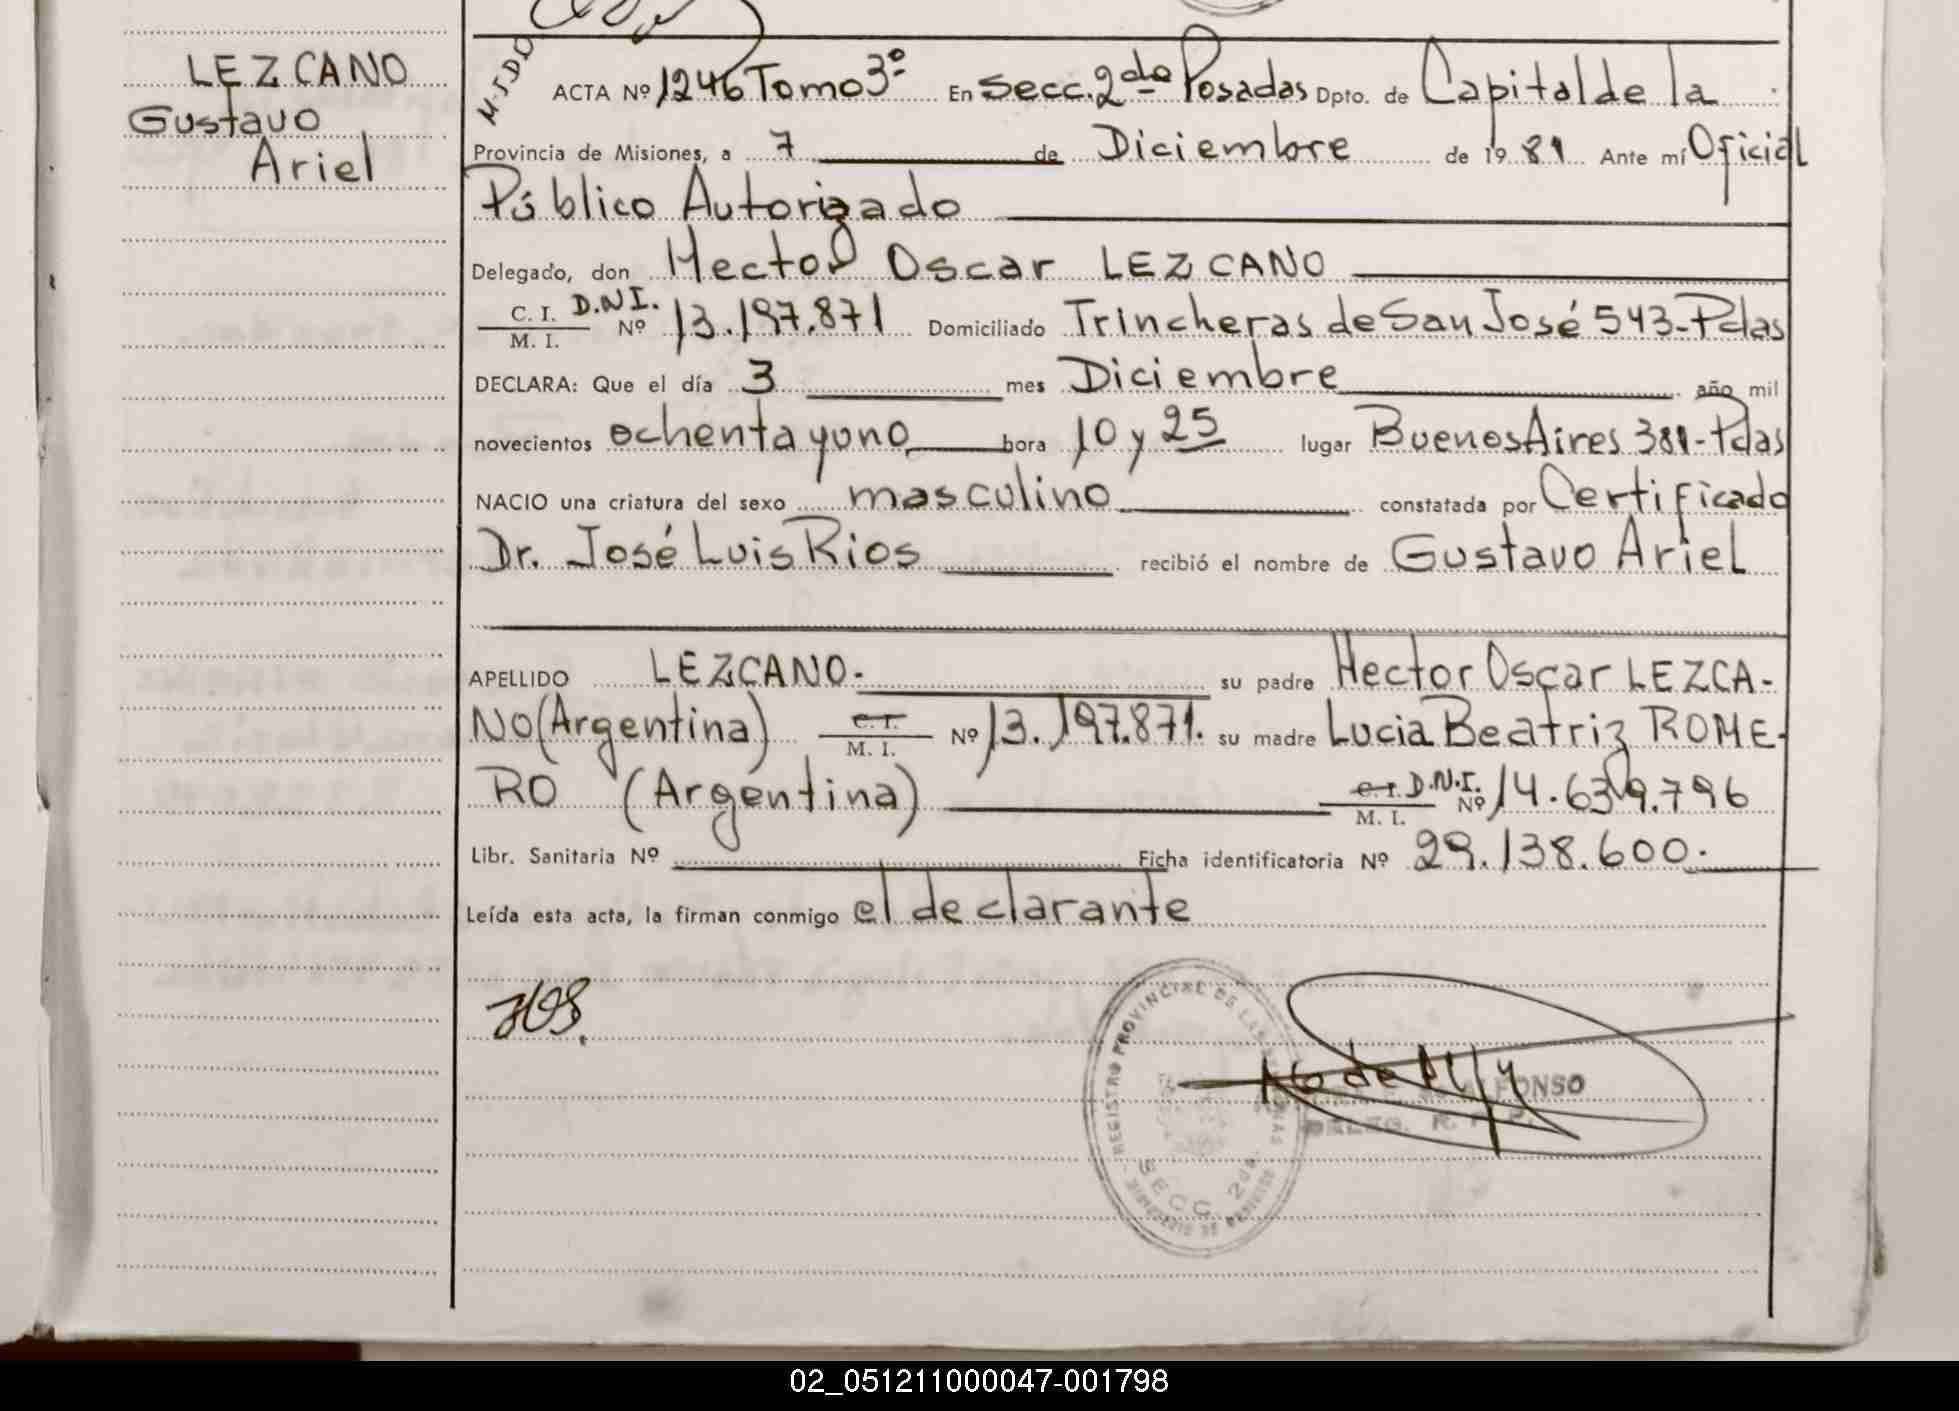 LEZCANO
Gustavo
Ariel
M.J.DD
ACTA Nº 1246 Tomo 3º En Secc. 2da Posadas Dpto. de Capital de la
Provincia de Misiones, a 7 de Diciembre de 1981 Ante mí Oficial
Público Autorizado
Delegado, don Hector Oscar LEZCANO
C. I. D.N.I.
M. I. Nº 13.197.871 Domiciliado Trincheras de San José 543-Pdas
DECLARA: Que el día 3 mes Diciembre año mil
novecientos ochenta y uno hora 10 y 25 lugar Buenos Aires 381-Pdas
NACIO una criatura del sexo masculino constatada por Certificado
Dr. José Luis Rios recibió el nombre de Gustavo Ariel
APELLIDO LEZCANO. su padre Hector Oscar LEZCA-
NO (Argentina) C.I. M. I. Nº 13.197.871. su madre Lucia Beatriz ROME-
RO (Argentina) C.I. D.N.I. M. I. Nº 14.639.796
Libr. Sanitaria Nº Ficha identificatoria Nº 29.138.600.
Leída esta acta, la firman conmigo el declarante
REGISTRO PROVINCIAL DE LAS
SECC. 2da.
ALFONSO
DELEG. R.
02_051211000047-001798